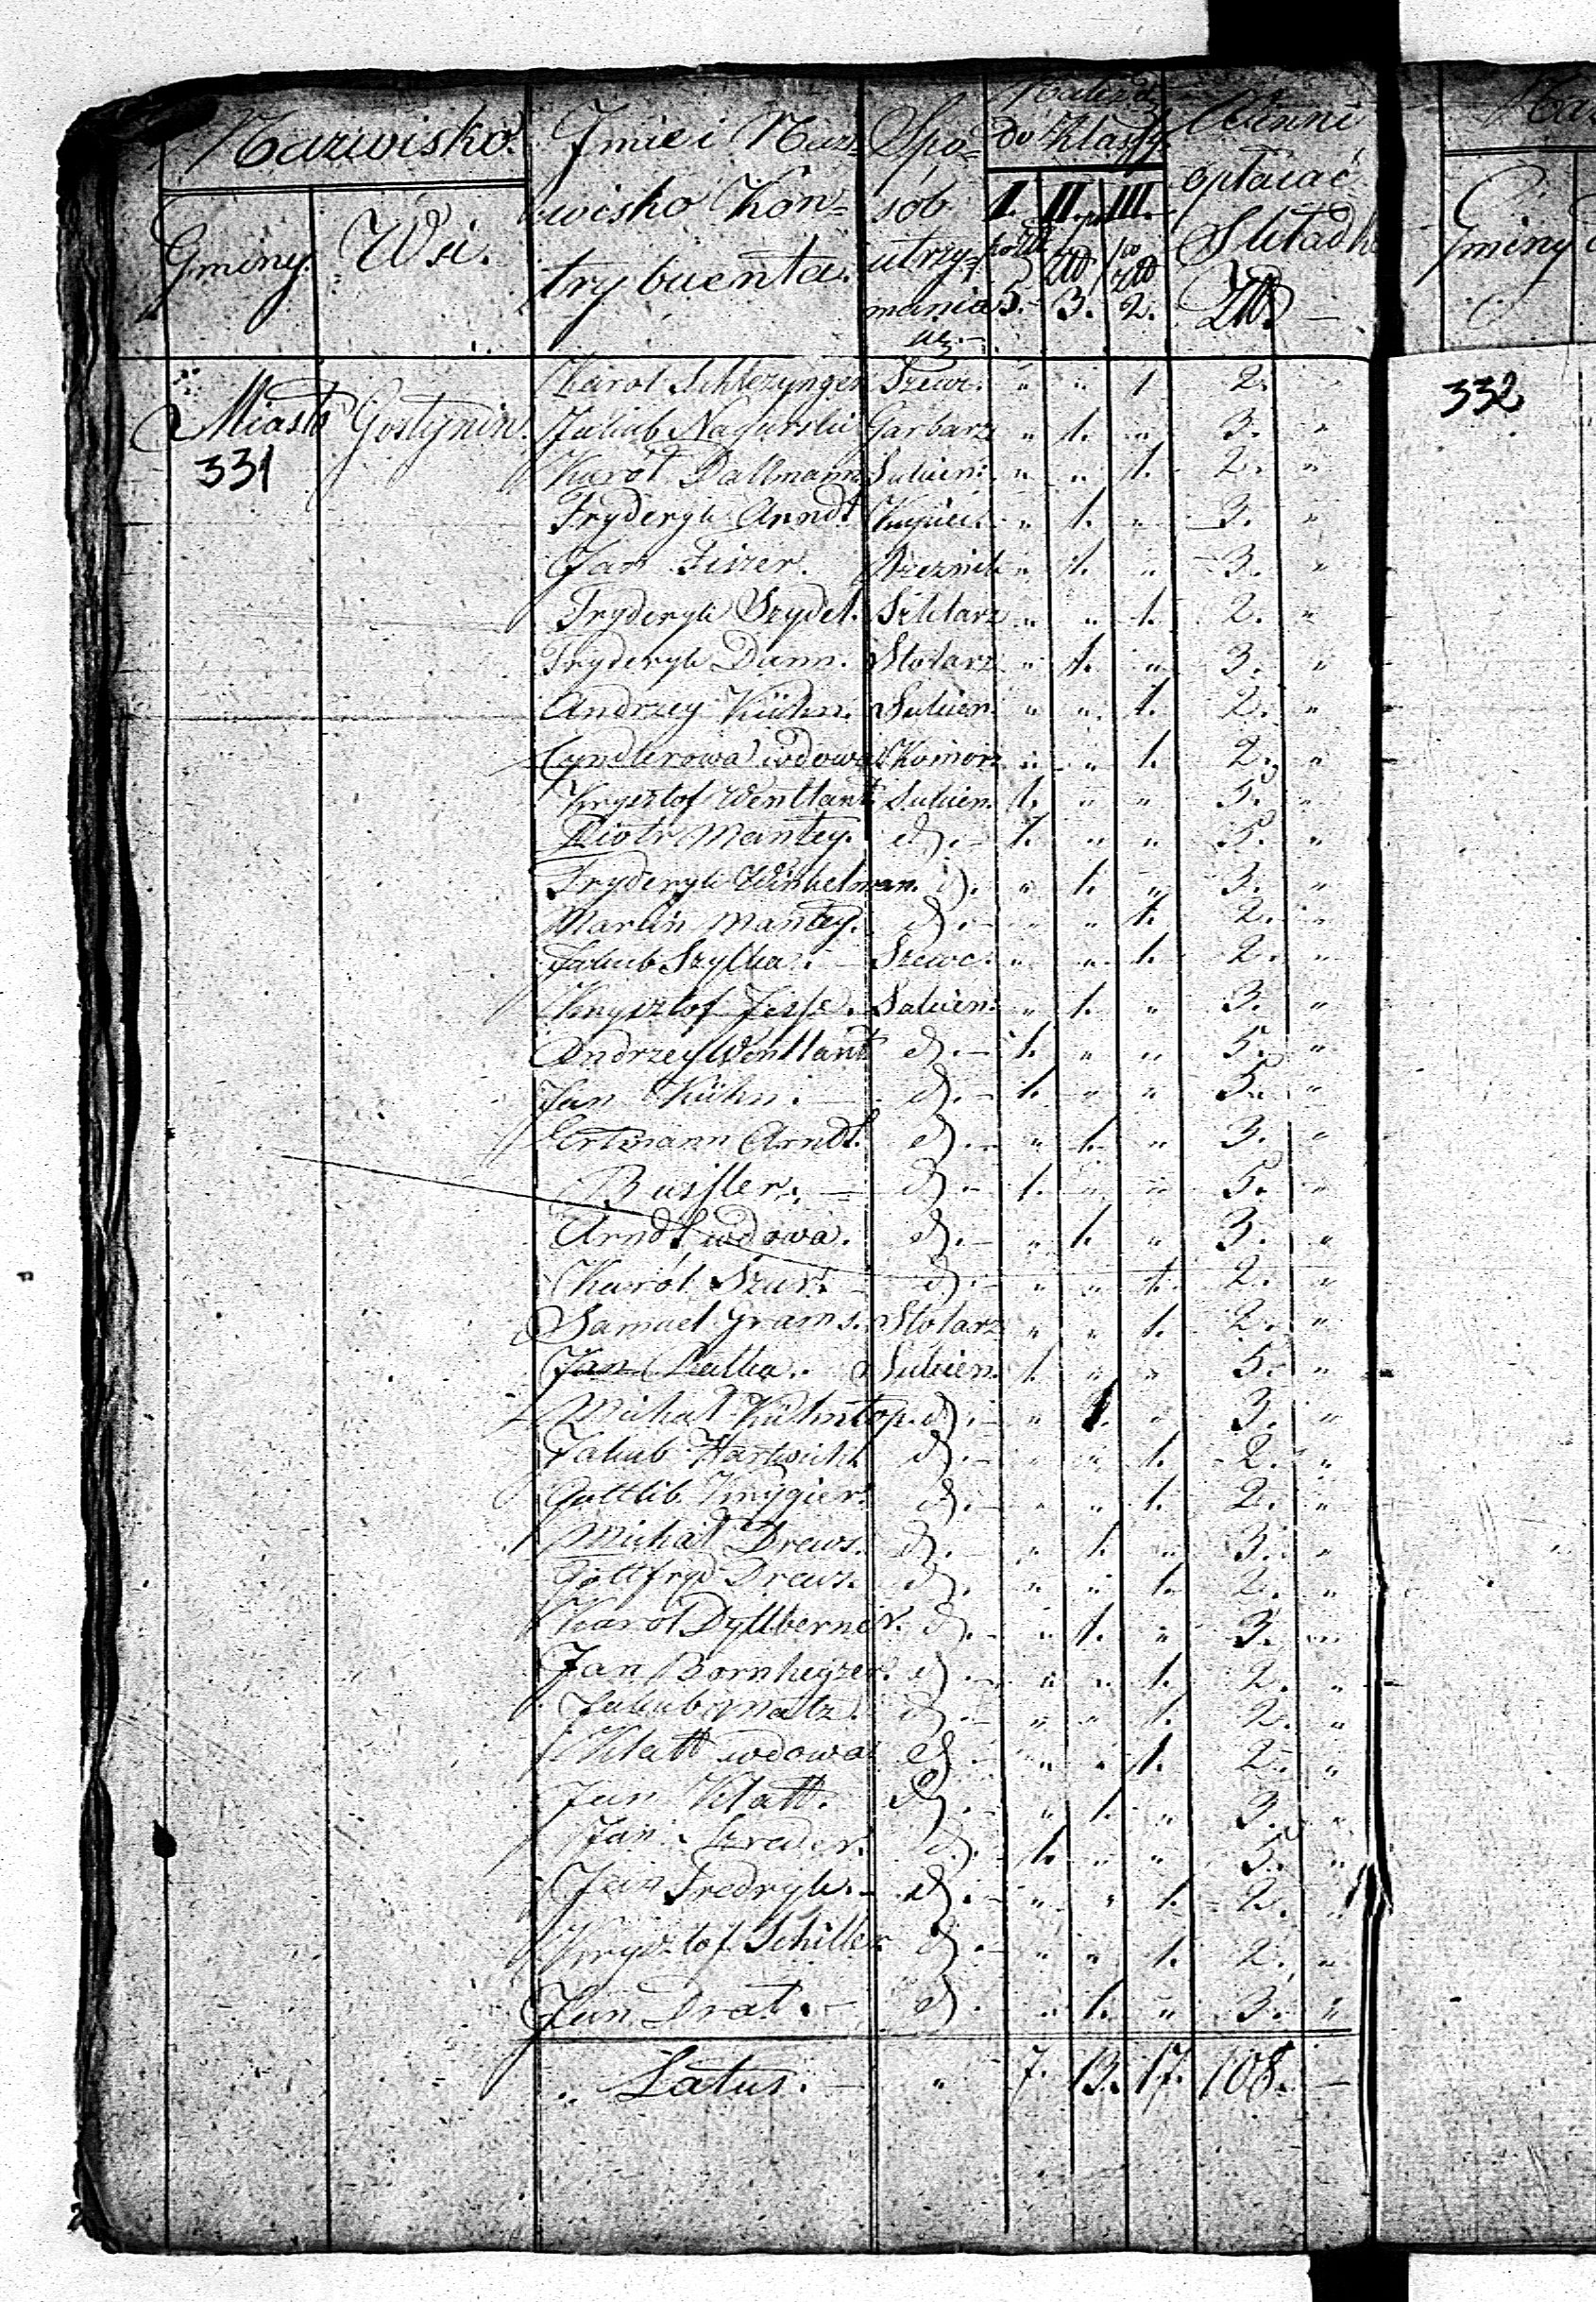 Nazwisko. Jmie i Naz= Spo= Należą do Klassy. Winni
Gminy. Wsi. wisko Kon= sob I. II. III. opłacać
trybuenta. utrzy= po Złł po Złł po Złł Składki
mania 5. 3. 2. Złł. –
Miasto Gostynin.
331
332
Gminy
Karol Schlezynger Szewc. " " 1. 2. "
Jakub Nagurski Garbarz " 1. " 3. "
Karol Dallmann Sukien: " " 1. 2. "
Fryderyk Arndt Kupiec. " 1. " 3. "
Jan Fiizer. Rzeznik " 1. " 3. "
Fryderyk Szydel. Szklarz " " 1. 2. "
Fryderyk Damm. Stolarz " 1. " 3. "
Andrzey Kühn. Sukien. " " 1. 2. "
Cyndlerowa wdowa Komorz. " " 1. 2. "
Krysztof Wentlant Sukien. 1. " " 5. "
Piotr Mantey. d). – 1. " " 5. "
Fryderyk Winkelman. d). " 1. " 3. "
Marcin Mantey. d). – " " 1. 2. "
Jakub Szylka. – Szewc. " " 1. 2. "
Krysztof Jesse. Sukien: " 1. " 3. "
Andrzey Wentlant d). – 1. " " 5. "
Jan Kühn. – d). – 1. " " 5. "
Ertmann Arndt. d). – " 1. " 3. "
Bussler. – d). – 1. " " 5. "
Arndt wdowa. d). – " 1. " 3. "
Karól Szur. – d). – " " 1. 2. "
Samuel Grams. Stolarz " " 1. 2. "
Jan Sukien. 1. " " 5. "
Michał Kühntop. d). – " 1. " 3. "
Jakub Hartwich d). – " " 1. 2. "
Gottlib Krygier. d). – " " 1. 2. "
Michał Drews. d). – " 1. " 3. "
Gottfryd Drews. d). " " 1. 2. "
Karol Dyllberner. d). – " 1. " 3. "
Jan Bornheyzer. d). – " " 1. 2. "
Jakub Matz. d). – " " 1. 2. "
Klatt wdowa d) – " " 1. 2. "
Jan Klatt. d). – " 1. " 3. "
Jan Szreder. d). 1. " " 5. "
Jan Fredryk. – d). – " " 1. 2. "
Krysztof Schiller d). – " " 1. 2. "
Jan Drat. – d). " 1. " 3. "
" Latus. – " 7. 13. 17. 108. –